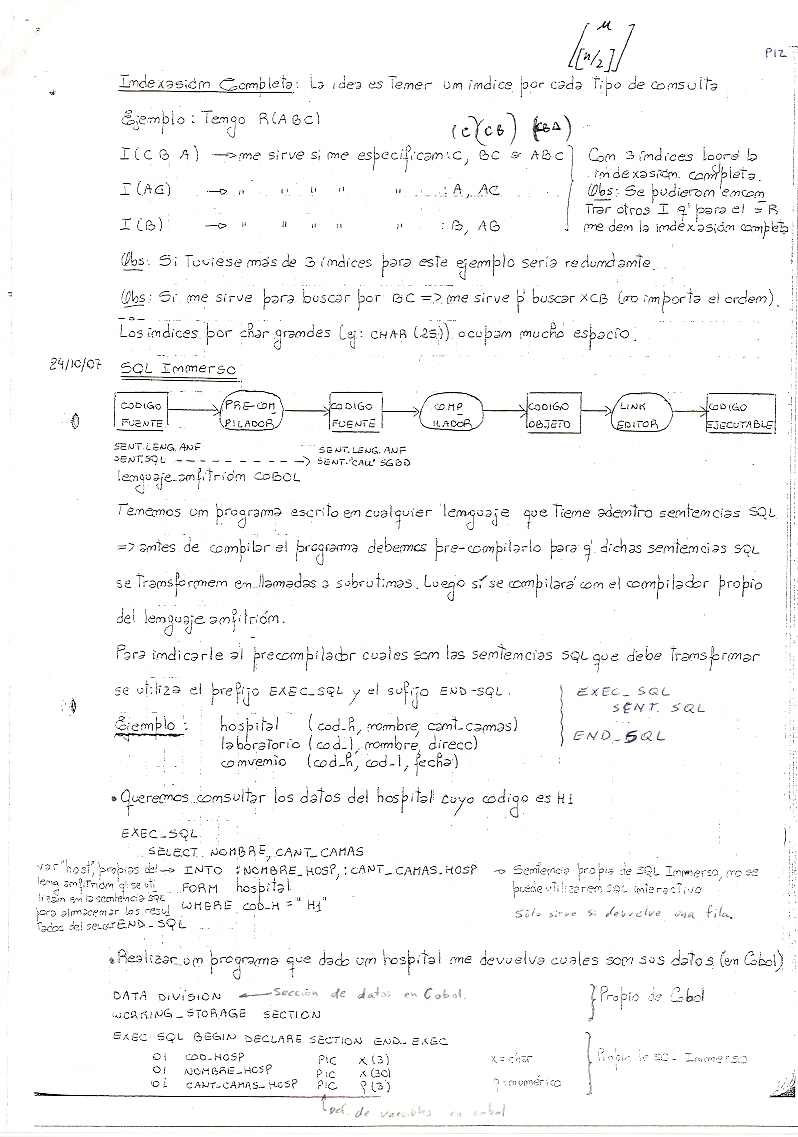 [ n
[n/2] ]
P12
Indexasión Completa: La idea es Tener un índice por cada tipo de consulta
Ejemplo: Tengo R(ABC)
(C)(CB) (CBA)
I(C B A) → me sirve si me especifican: C, BC o ABC
I(AC) → " " " " " : A, AC
I(B) → " " " " " : B, AB
Con 3 índices logré la
indexasión completa.
Obs: Se pudieron encon
Trar otros I q' para el = R
me den la indexasión completa
Obs: Si Tuviese más de 3 índices para este ejemplo sería redundante.
Obs: Si me sirve para buscar por BC => me sirve p' buscar xCB (no importa el orden).
Los índices por char grandes (ej: CHAR (25)) ocupan mucho espacio.
24/10/07 SQL Inmerso
CODIGO FUENTE → PRE-COMPILADOR → CODIGO FUENTE → COMPILADOR → CODIGO OBJETO → LINK EDITOR → CODIGO EJECUTABLE
SENT. LENG. ANF SENT. LENG. ANF
SENT. SQL - - - - - - - - → SENT. "CALL" SGBD
lenguaje anfitrión COBOL
Tenemos un programa escrito en cualquier lenguaje que tiene adentro sentencias SQL
=> antes de compilar el programa debemos pre-compilarlo para q' dichas sentencias SQL
se transformen en llamadas a subrutinas. Luego sí se compilará con el compilador propio
del lenguaje anfitrión.
Para indicarle al precompilador cuales son las sentencias SQL que debe transformar
se utiliza el prefijo EXEC_SQL y el sufijo END-SQL.
EXEC_SQL
SENT. SQL
END_SQL
Ejemplo: hospital (cod_h, nombre, cant_camas)
laboratorio (cod_l, nombre, direcc)
convenio (cod_h, cod_l, fecha)
• Queremos consultar los datos del hospital cuyo codigo es H1
EXEC_SQL
SELECT NOMBRE, CANT_CAMAS
INTO :NOMBRE_HOSP, :CANT_CAMAS_HOSP
FORM hospital
WHERE cod_H = "H1"
END_SQL
var "host", propias del →
leng anfitrión q' se uti
lizan en la sentencia SQL
para almacenar los resul
tados del select
→ Sentencia propia de SQL Inmerso, no se
puede utilizar en SQL interactivo
Sólo sirve si devuelve una fila.
• Realizar un programa que dado un hospital me devuelva cuales son sus datos (en Cobol)
DATA DIVISION ← Sección de datos en Cobol.
WORKING_STORAGE SECTION
Propio de Cobol
EXEC SQL BEGIN DECLARE SECTION END_EXEC
01 COD_HOSP PIC X(3) X=char
01 NOMBRE_HOSP PIC X(30)
01 CANT_CAMAS_HOSP PIC 9(3) 9=numérico
Propio de SQL Inmerso
Def. de variables en cobol